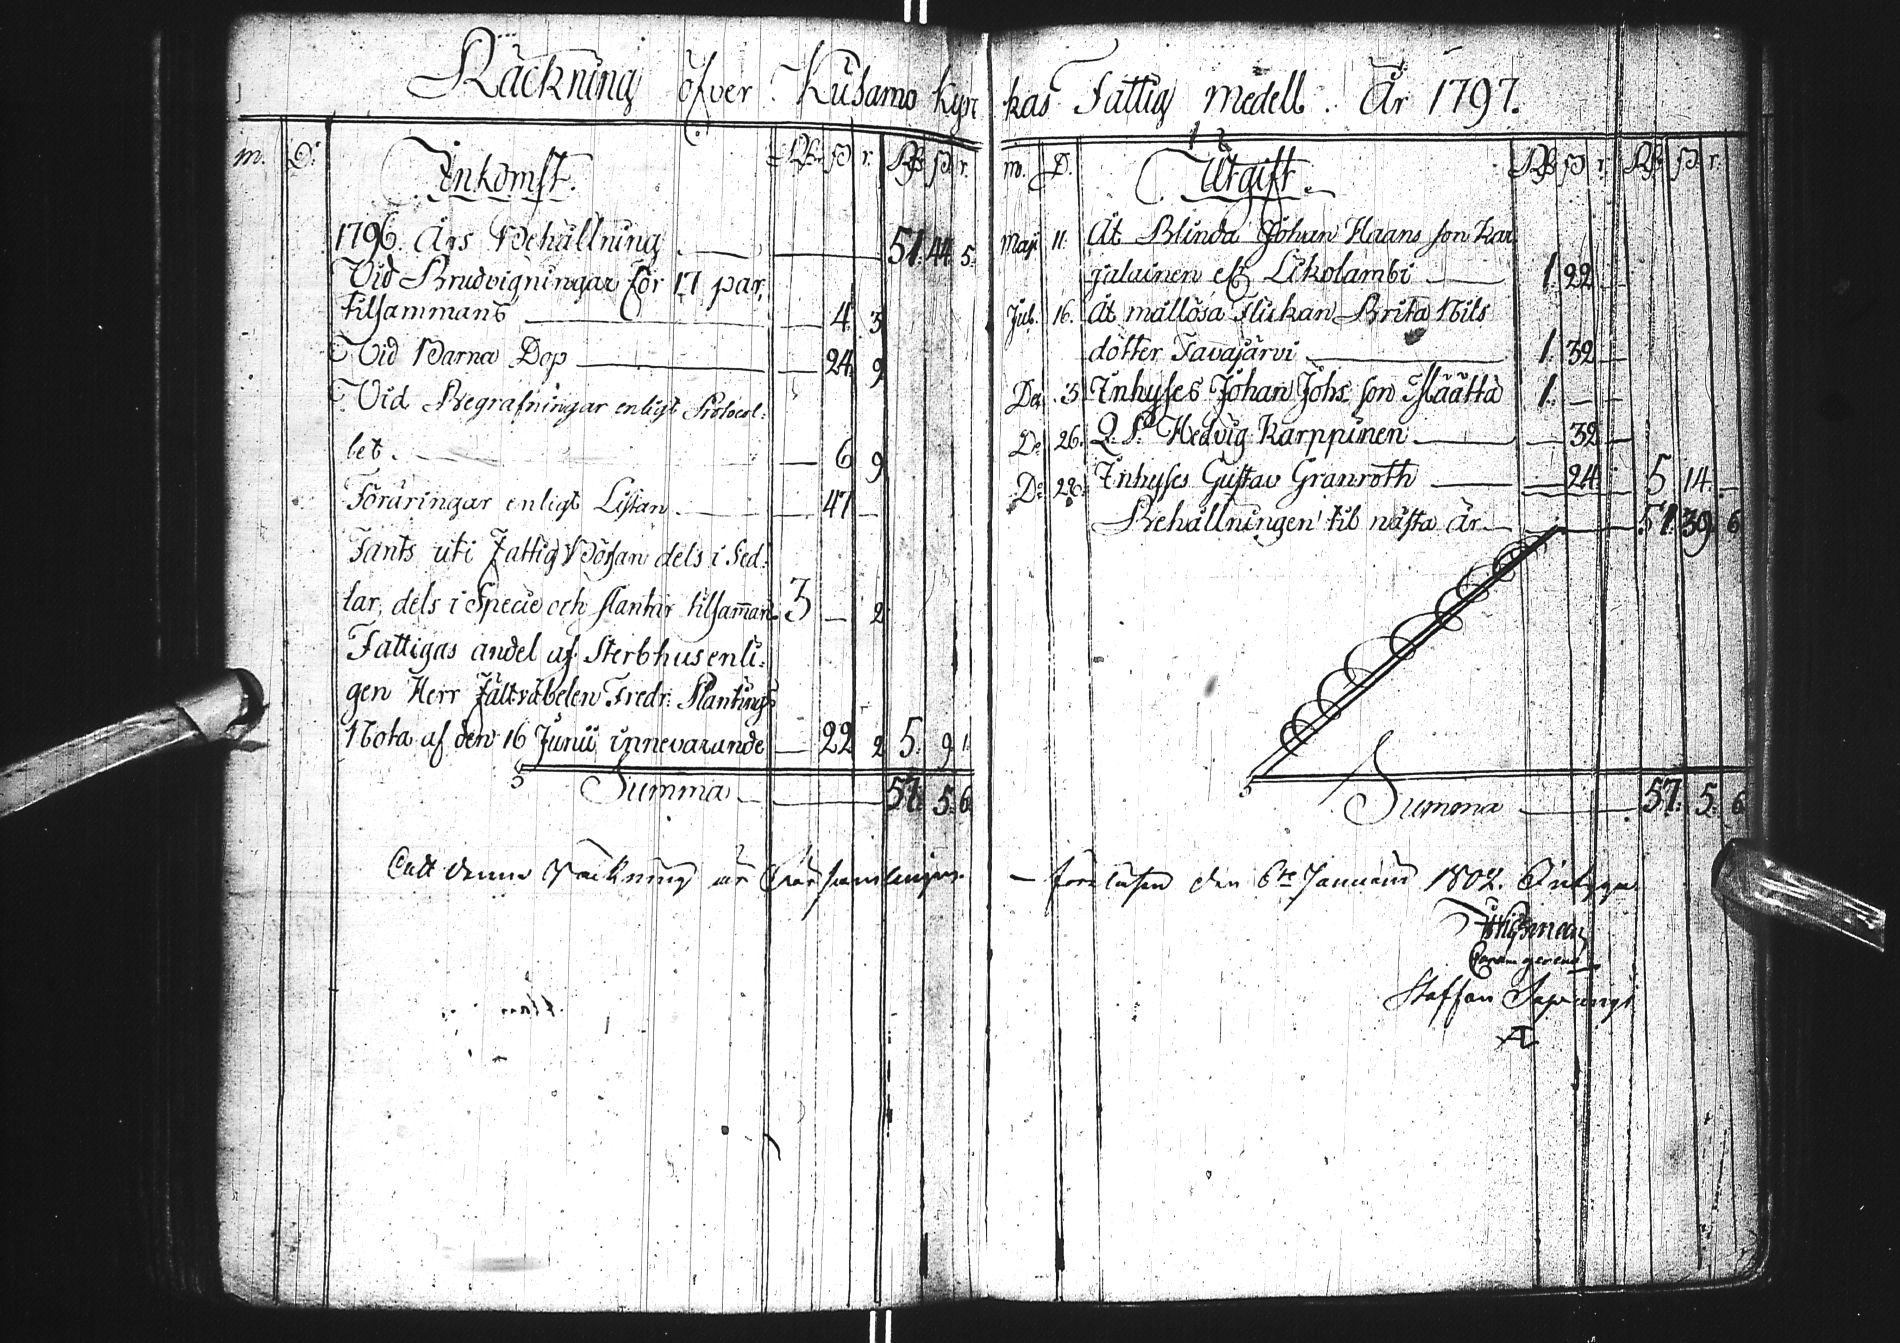 Räckning öfver Kusamo kyr kas Fattig medell. År 1797.
m. D. Inkomst. Rß ß r. Rß ß r.
1796. Års Behållning 51. 44. 5.
Vid Brudvigningar för 17 par,
tilsammans 4. 3
Vid Barna Dop 24. 9
Vid Begrafningar enligt Protocol-
let 6 9
Föräringar enligt Listan 47
Fants uti Fattig Bössan dels i Sed-
lar, dels i Specie och slantar tilsamman 3 — 2
Fattigas andel af Sterbhus enli-
gen Herr Fältväbelen Fredr: Plantings
Nota af den 16 Junii innevarande 22 2 5. 9 1.
Summa 57. 5. 6
m. D. Utgift. Rß ß r. Rß ß r.
Maji 11. Åt Blinda Johan Haans son Kar
jalainen Likolambi 1. 22
Jul. 16. Åt mållösa Flickan Brita Nils
dotter Tavajärvi 1. 32
Dec. 3 Inhyses Johan Johs son Määttä 1.
Do 26. Q. P. Hedvig Karppinen 32
Do 28. Inhyses Gustav Granroth 24. 5 14.
Behållningen til nästa År 51. 39. 6
Summa 57. 5. 6
att denna Räckning är för församlingen
föreläsen den 6te Januarii 1802.
Staffan